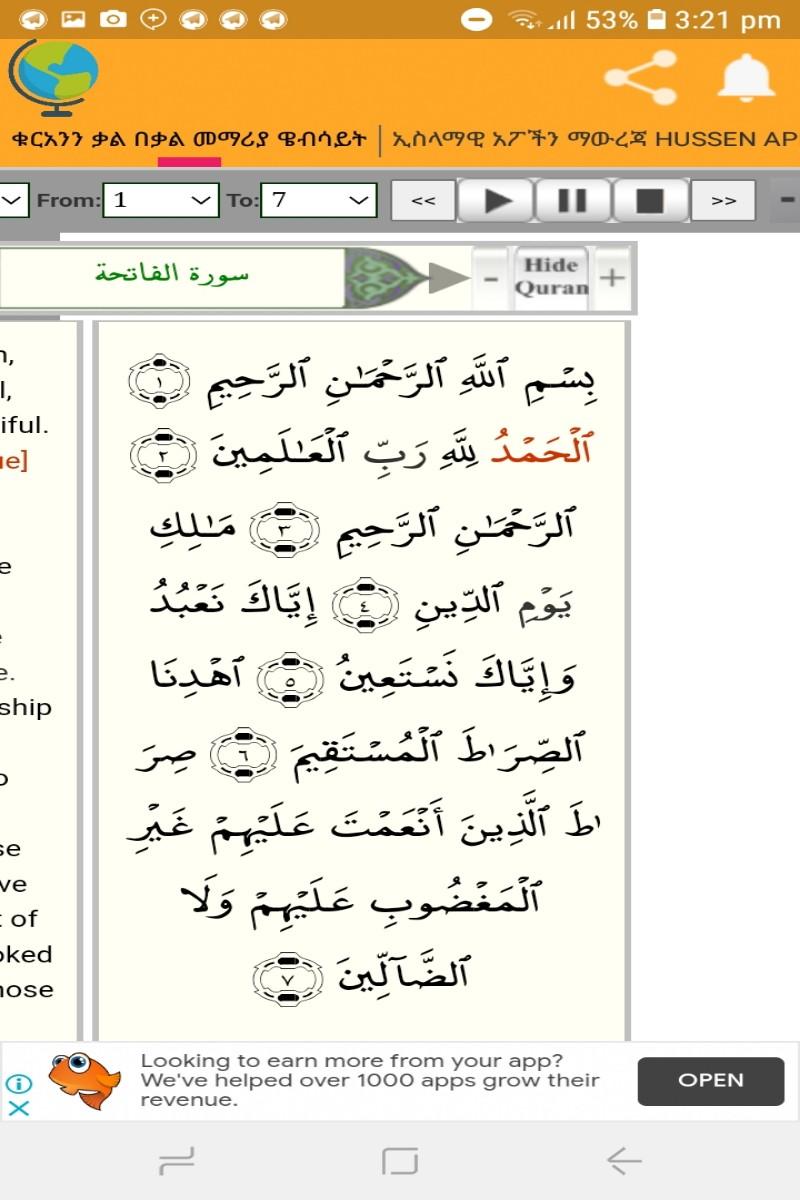 53% 3:21 pm
ቁርአንን ቃል በቃል መማሪያ ዌብሳይት | ኢስላማዊ አፖችን ማውረጃ HUSSEN AP
From: 1 To: 7 << >> -
سورة الفاتحة - Hide Quran +
بِسْمِ ٱللَّهِ ٱلرَّحْمَـٰنِ ٱلرَّحِيمِ ١
ٱلْحَمْدُ لِلَّهِ رَبِّ ٱلْعَـٰلَمِينَ ٢
ٱلرَّحْمَـٰنِ ٱلرَّحِيمِ ٣ مَـٰلِكِ
يَوْمِ ٱلدِّينِ ٤ إِيَّاكَ نَعْبُدُ
وَإِيَّاكَ نَسْتَعِينُ ٥ ٱهْدِنَا
ٱلصِّرَٰطَ ٱلْمُسْتَقِيمَ ٦ صِرَ
ٰطَ ٱلَّذِينَ أَنْعَمْتَ عَلَيْهِمْ غَيْرِ
ٱلْمَغْضُوبِ عَلَيْهِمْ وَلَا
ٱلضَّآلِّينَ ٧
n,
l,
iful.
ue]
e
e
e.
ship
o
se
ve
t of
oked
hose
Looking to earn more from your app?
We've helped over 1000 apps grow their
revenue.
OPEN